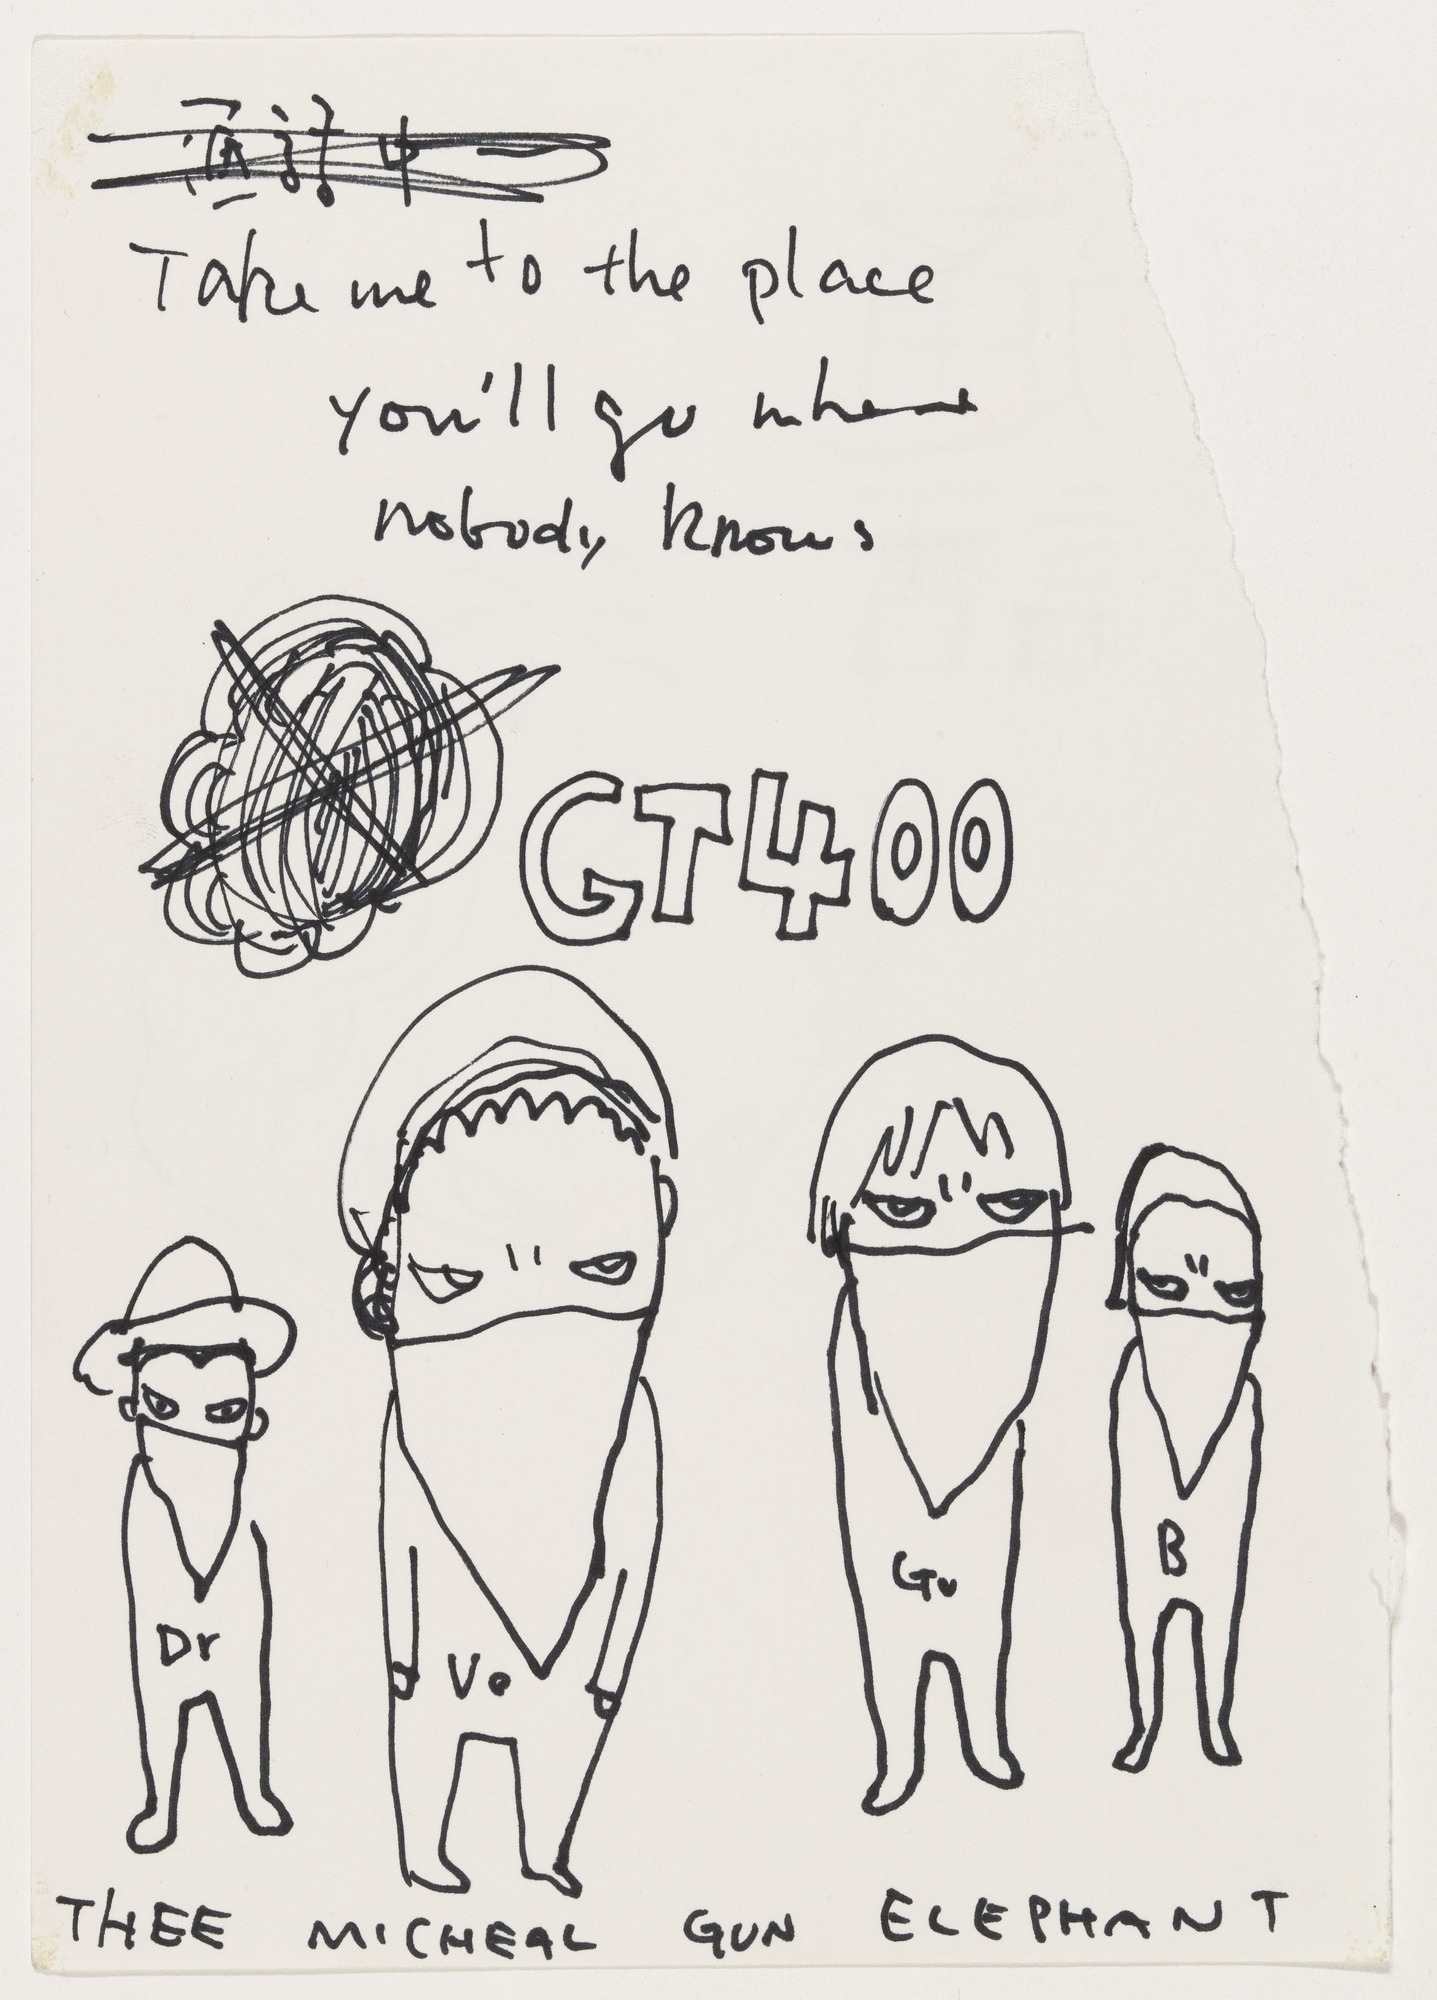 Take me to the place
you'll go where
nobody knows
GT400
Dr
Vo
Gu
B
THEE MICHEAL GUN ELEPHANT